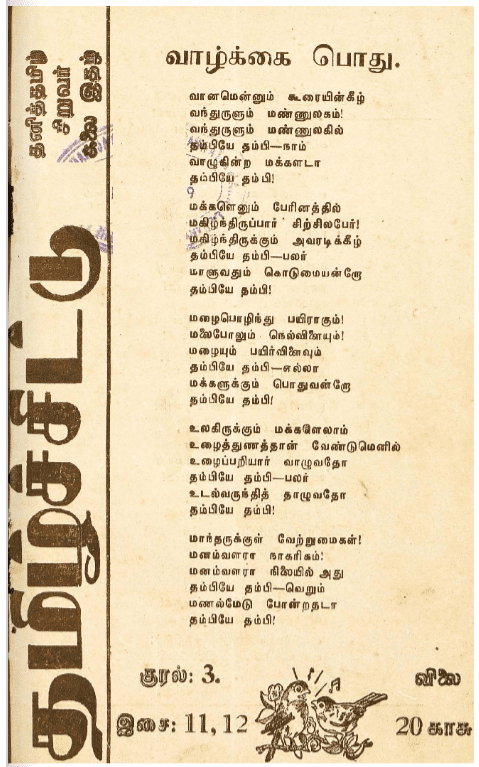 தனித்தமிழ்
சிறுவர்
கலை இதழ்
தமிழ்ச்சிட்டு
வாழ்க்கை பொது.
வானமென்னும் கூரையின்கீழ்
வந்துருளும் மண்ணுலகம்!
வந்துருளும் மண்ணுலகில்
தம்பியே தம்பி—நாம்
வாழுகின்ற மக்களடா
தம்பியே தம்பி!
மக்களெனும் பேரினத்தில்
மகிழ்ந்திருப்பார் சிற்சிலபேர்!
மகிழ்ந்திருக்கும் அவரடிக்கீழ்
தம்பியே தம்பி—பலர்
மாளுவதும் கொடுமையன்றோ
தம்பியே தம்பி!
மழைபொழிந்து பயிராகும்!
மலைபோலும் நெல்விளையும்!
மழையும் பயிர்விளைவும்
தம்பியே தம்பி—எல்லா
மக்களுக்கும் பொதுவன்றோ
தம்பியே தம்பி!
உலகிருக்கும் மக்களெலாம்
உழைத்துணத்தான் வேண்டுமெனில்
உழைப்பறியார் வாழுவதோ
தம்பியே தம்பி—பலர்
உடல்வருந்தித் தாழுவதோ
தம்பியே தம்பி!
மாந்தருக்குள் வேற்றுமைகள்!
மனம்வளரா நாகரிகம்!
மனம்வளரா நிலையில் அது
தம்பியே தம்பி—வெறும்
மணல்மேடு போன்றதடா
தம்பியே தம்பி!
குரல்: 3.
விலை
இசை: 11, 12
20 காசு